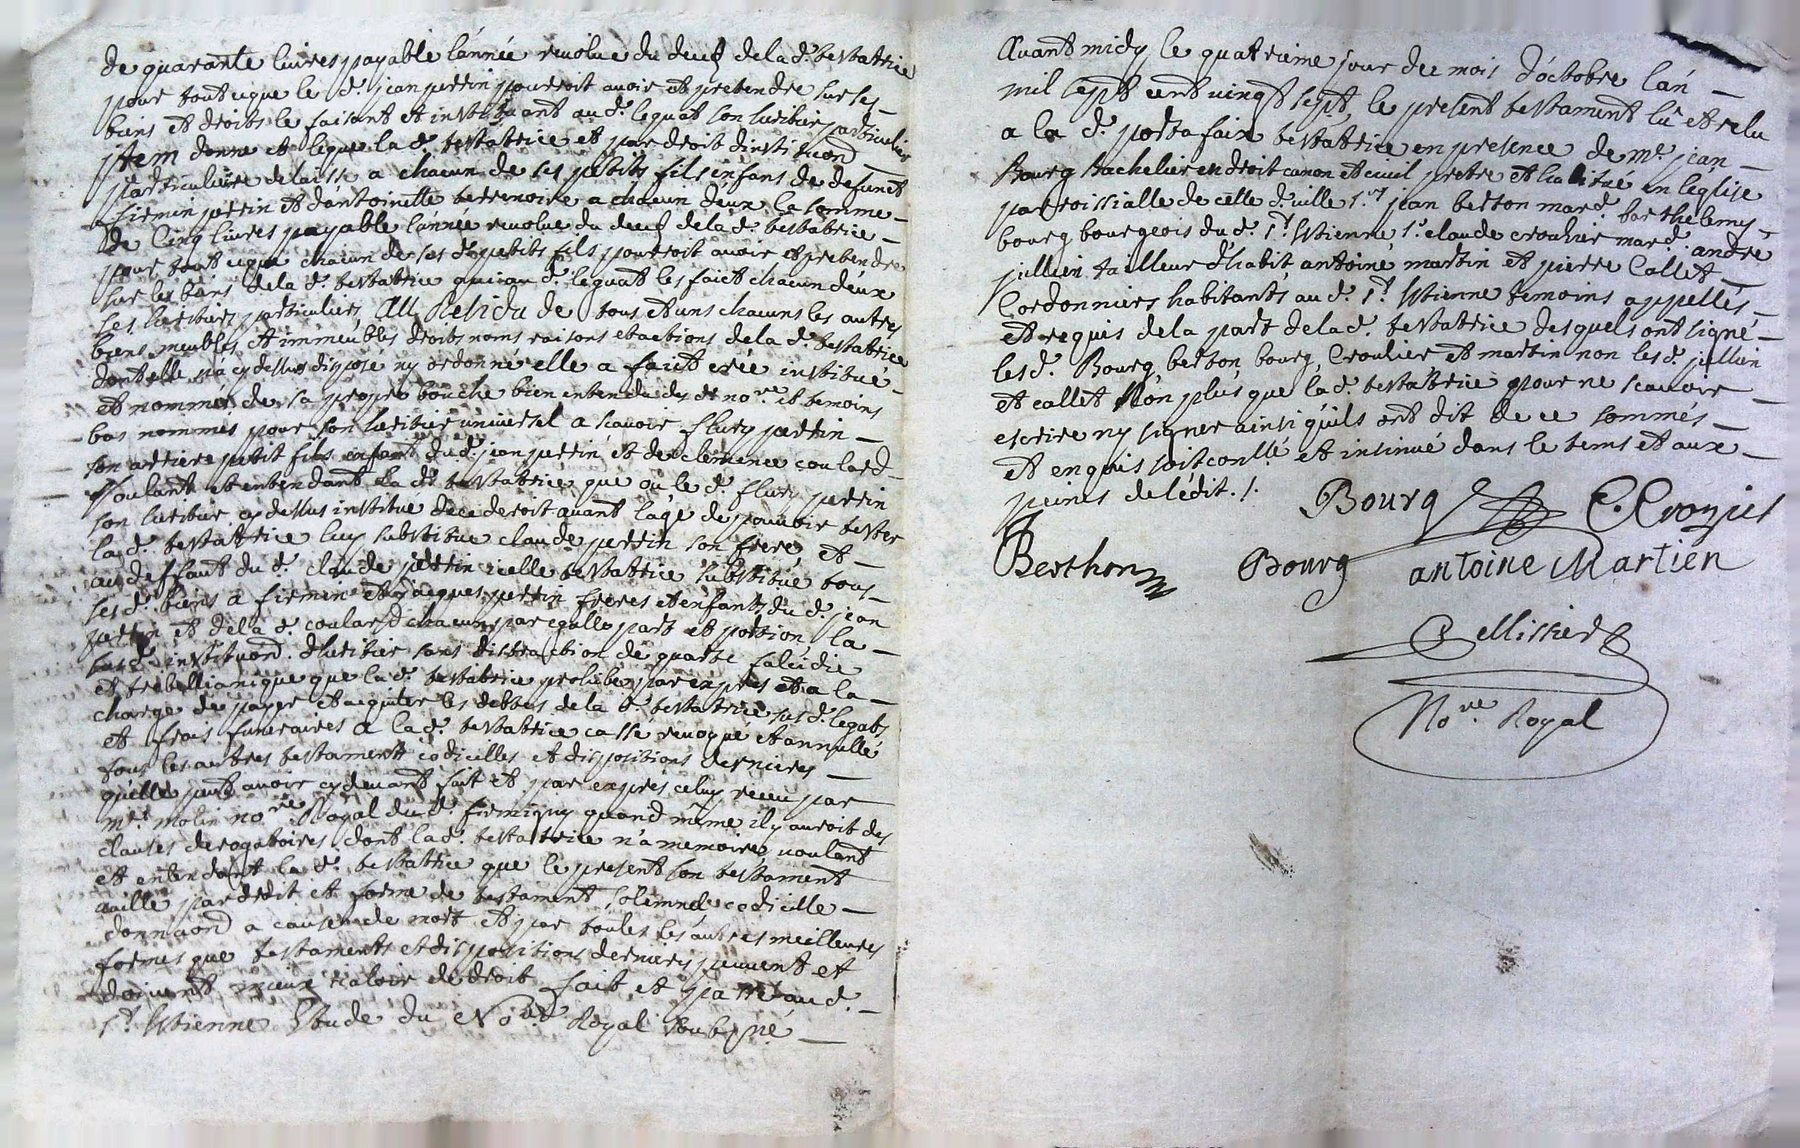 de quarante livres payable l'année revolue du deces de lad. testatrice
pour tout ce que le d. jean perrin pourroit avoir et pretendre sur ses
biens et droits le faisant et instituant aud. legat son heritier particulier
jtem donne et legue lad. testatrice et par droit d'institu͠on
particuliere delaisse a chacun de ses petits fils enfans de defunct
firmin perrin et d'antoinette a chacun d'eux la somme
de cinq livres payable l'année revolue du deces de lad. testatrice
pour tout ce que chacun de ses d. petits fils pourroit avoir et pretendre
sur les biens de lad. testatrice aud. legat les faict chacun d'eux
ses heritiers particuliers Au Residu de tous et uns chacuns les autres
biens meubles et immeubles droits noms raisons et actions de lad. testatrice
dont elle n'a cy dessus disposé ny ordonné elle a faict créé institué
et nommé de sa propre bouche bien entendu dud. no.re et temoins
bas nommés pour son heritier universel a scavoir fleury perrin
son arriere petit fils enfant dud. jean perrin et de clemence coulard
Voulant et entendant lad. testatrice que ou le d. fleury perrin
son heritier cy dessus institué decederoit avant l'age de pouvoir tester
lad. testatrice luy substitue claude perrin son frere, et
au deffaut du d. claude perrin icelle testatrice substitue tous
sesd. biens a firmin et jacques perrin freres et enfants du d. jean
perrin et de lad. coulard chacun par egalle part et portion, la
susd. institu͠on d'heritier sans distraction de quarte falcidie
et trebellianique que lad. testatrice prohibe par expres et a la
charge de payer et acquiter les debtes de lad. testatrice susd. legats
et frais funeraires a lad. testatrice casse revoqué et annullé
tous les autres testaments codicilles et dispositions dernieres
quelle peut avoir cy devant fait et par exprés celuy receu par
m.e molin no.re Royal dud. firminy quand même il y auroit des
clauses derogatoires dont lad. testatrice n'a memoire, voulant
et entendant lad. testatrice que le present son testament
vaille par droit et forme de testament solemnel codicille
dona͠on a cause de mort et par toutes les autres meilleures
formes que testaments et dispositions dernieres peuvent et
doivent mieux valoir de droit fait et passé aud.
S.t Estienne Etude du No.re Royal soubz.né
Avant midy le quatrieme jour du mois d'octobre l'an
mil sept cent vingt sept, le present testament lu et relu
a la d. portafaix testatrice en presence de m.e jean
Bourg Bachelier en droit canon et civil pretre et habitué en l'église
parroissialle de cette d. ville s.r jean berton mar.d barthelemy
bourg bourgeois du d. S.t Estienne, s.r claude crouzier mar.d andré
jullien tailleur d'habit antoine martin et pierre Callet
Cordonniers habitants au d. S.t Estienne temoins appellés
et requis de la part de lad. testatrice desquels ont signé
lesd. Bourg berton, bourg, Crouzier et martin non lesd. jullien
et callet Non plus que lad. testatrice pour ne scavoir
escrire ny signer ainsi qu'ils ont dit de ce sommés
et enquis soit con.llé et insinué dans le tems et aux
peines de l'édit. /.
Bourg C. Crozier
Berthon Bourg antoine Martien
Pellissier
No.re Royal